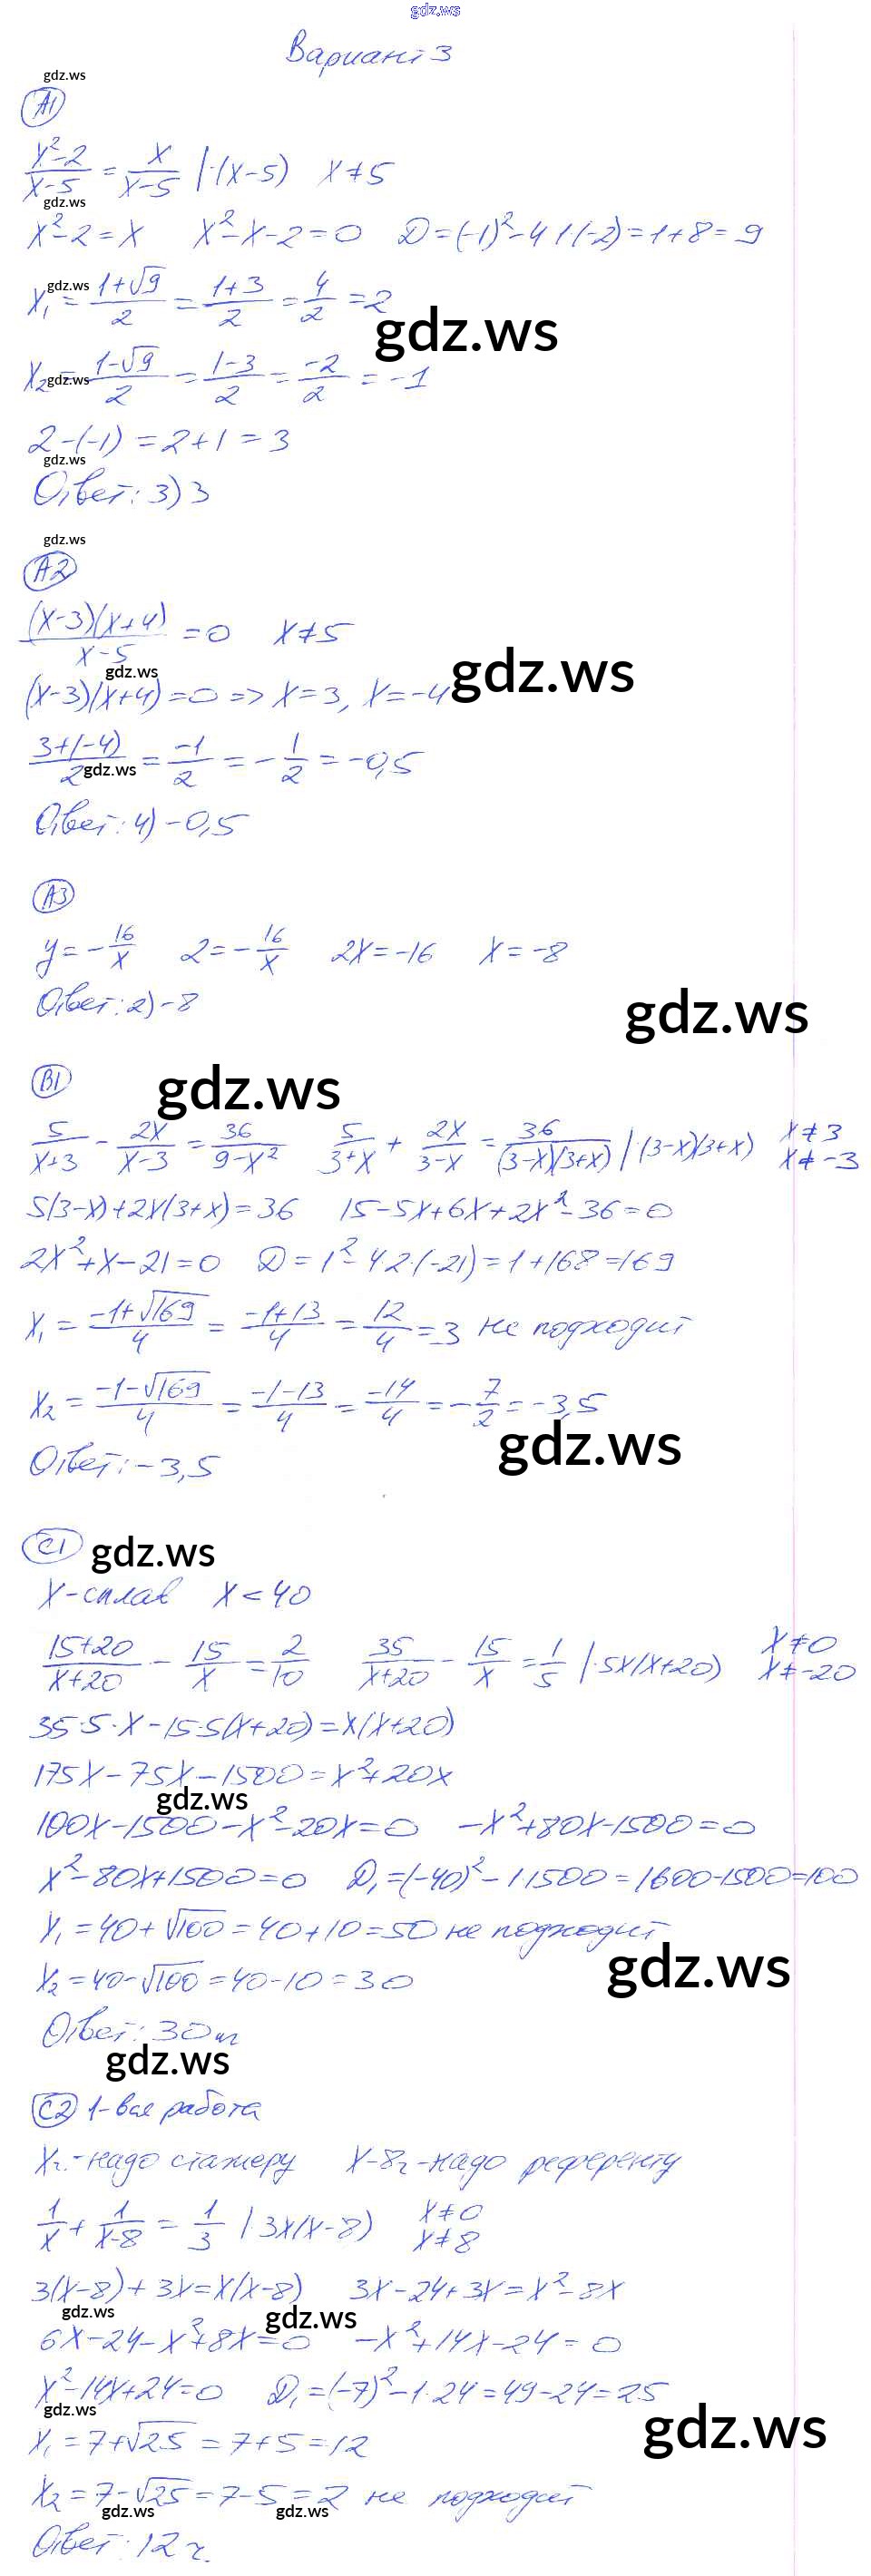 gdz.ws
Вариант 3
gdz.ws
А1
(x²-2)/(x-5) = x/(x-5) |·(x-5) x≠5
gdz.ws
x²-2=x x²-x-2=0 D=(-1)²-4·1·(-2)=1+8=9
gdz.ws
x₁ = (1+√9)/2 = (1+3)/2 = 4/2 = 2
gdz.ws
x₂ = (1-√9)/2 = (1-3)/2 = -2/2 = -1
gdz.ws
2-(-1)=2+1=3
gdz.ws
Ответ: 3) 3
gdz.ws
А2
((x-3)(x+4))/(x-5) = 0 x≠5
gdz.ws
gdz.ws
(x-3)(x+4)=0 => x=3, x=-4
(3+(-4))/2 = -1/2 = -1/2 = -0,5
gdz.ws
Ответ: 4) -0,5
А3
y = -16/x 2 = -16/x 2x=-16 x=-8
Ответ: 2) -8
gdz.ws
В1
gdz.ws
5/(x+3) - 2x/(x-3) = 36/(9-x²) 5/(3+x) + 2x/(3-x) = 36/((3-x)(3+x)) |·(3-x)(3+x) x≠3 x≠-3
5(3-x)+2x(3+x)=36 15-5x+6x+2x²-36=0
2x²+x-21=0 D=1²-4·2·(-21)=1+168=169
x₁ = (-1+√169)/4 = (-1+13)/4 = 12/4 = 3 не подходит
x₂ = (-1-√169)/4 = (-1-13)/4 = -14/4 = -7/2 = -3,5
gdz.ws
Ответ: -3,5
С1
gdz.ws
x-сплав x<40
(15+20)/(x+20) - 15/x = 2/10 35/(x+20) - 15/x = 1/5 |·5x(x+20) x≠0 x≠-20
35·5·x-15·5(x+20)=x(x+20)
175x-75x-1500=x²+20x
gdz.ws
100x-1500-x²-20x=0 -x²+80x-1500=0
x²-80x+1500=0 D₁=(-40)²-1·1500=1600-1500=100
x₁=40+√100=40+10=50 не подходит
gdz.ws
x₂=40-√100=40-10=30
Ответ: 30
gdz.ws
С2 1-вся работа
xч.-надо стажеру x-8ч-надо референту
1/x + 1/(x-8) = 1/3 |·3x(x-8) x≠0 x≠8
3(x-8)+3x=x(x-8) 3x-24+3x=x²-8x
gdz.ws
gdz.ws
6x-24-x²+8x=0 -x²+14x-24=0
x²-14x+24=0 D₁=(-7)²-1·24=49-24=25
gdz.ws
gdz.ws
x₁=7+√25=7+5=12
x₂=7-√25=7-5=2 не подходит
gdz.ws
gdz.ws
Ответ: 12ч.